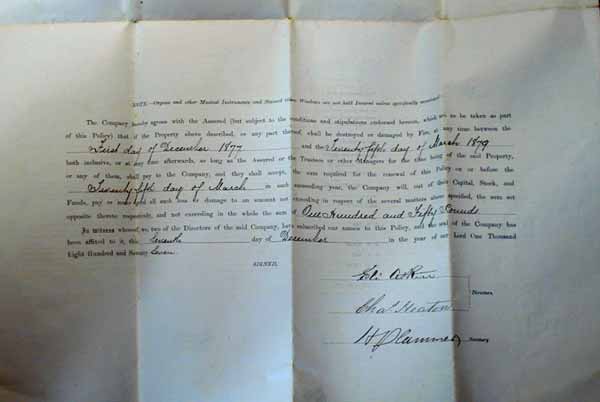 NOTE.—Organs and other Musical Instruments and Stained Glass Windows are not held Insured unless specifically mentioned.
The Company hereby agree with the Assured (but subject to the conditions and stipulations endorsed hereon, which are to be taken as part
of this Policy) that if the Property above described, or any part thereof, shall be destroyed or damaged by Fire, at any time between the
First day of December 1877 and the Twenty fifth day of March 1879
both inclusive, or at any time afterwards, so long as the Assured or the Trustees or other Managers for the time being of the said Property,
or any of them, shall pay to the Company, and they shall accept, the sum required for the renewal of this Policy on or before the
Twenty fifth day of March in each succeeding year, the Company will, out of their Capital, Stock, and
Funds, pay or make good all such loss or damage to an amount not exceeding in respect of the several matters above specified, the sum set
opposite thereto respectively, and not exceeding in the whole the sum of One Hundred and Fifty Pounds
In witness whereof we, two of the Directors of the said Company, have subscribed our names to this Policy, and the seal of the Company has
been affixed to it, this Seventh day of December in the year of our Lord One Thousand
Eight Hundred and Seventy Seven
SIGNED,
Eli Atkin
Chas Heaton
Directors,
H Plummer Secretary.